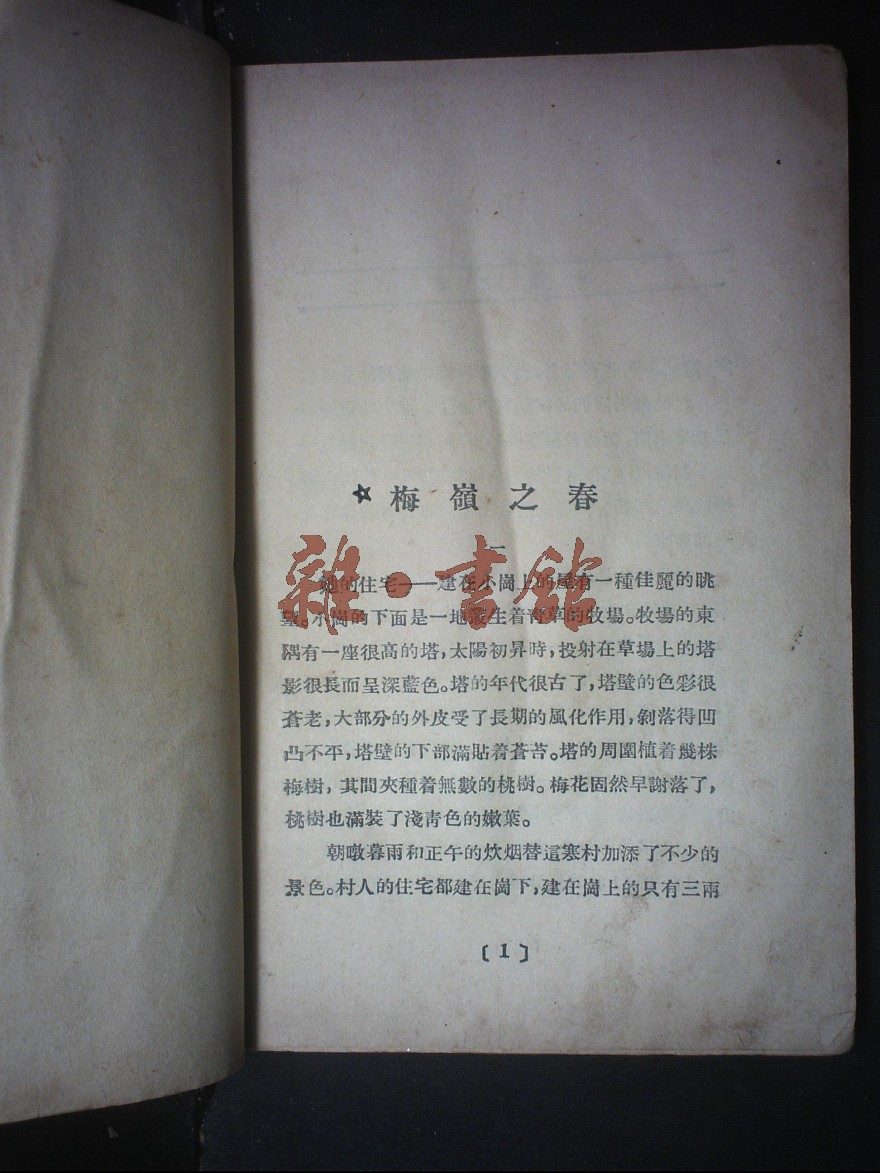 梅嶺之春
一
雜·書館
她的住宅——建在小崗上的屋有一種佳麗的眺
望。小崗的下面是一地叢生着青草的牧場。牧場的東
隅有一座很高的塔，太陽初昇時，投射在草場上的塔
影很長而呈深藍色。塔的年代很古了，塔壁的色彩很
蒼老，大部分的外皮受了長期的風化作用，剝落得凹
凸不平，塔壁的下部滿貼着蒼苔。塔的周圍植着幾株
梅樹，其間夾種着無數的桃樹。梅花固然早謝落了，
桃樹也滿裝了淺青色的嫩葉。
朝暾暮雨和正午的炊烟替這寒村加添了不少的
景色。村人的住宅都建在崗下，建在崗上的只有三兩
〔1〕